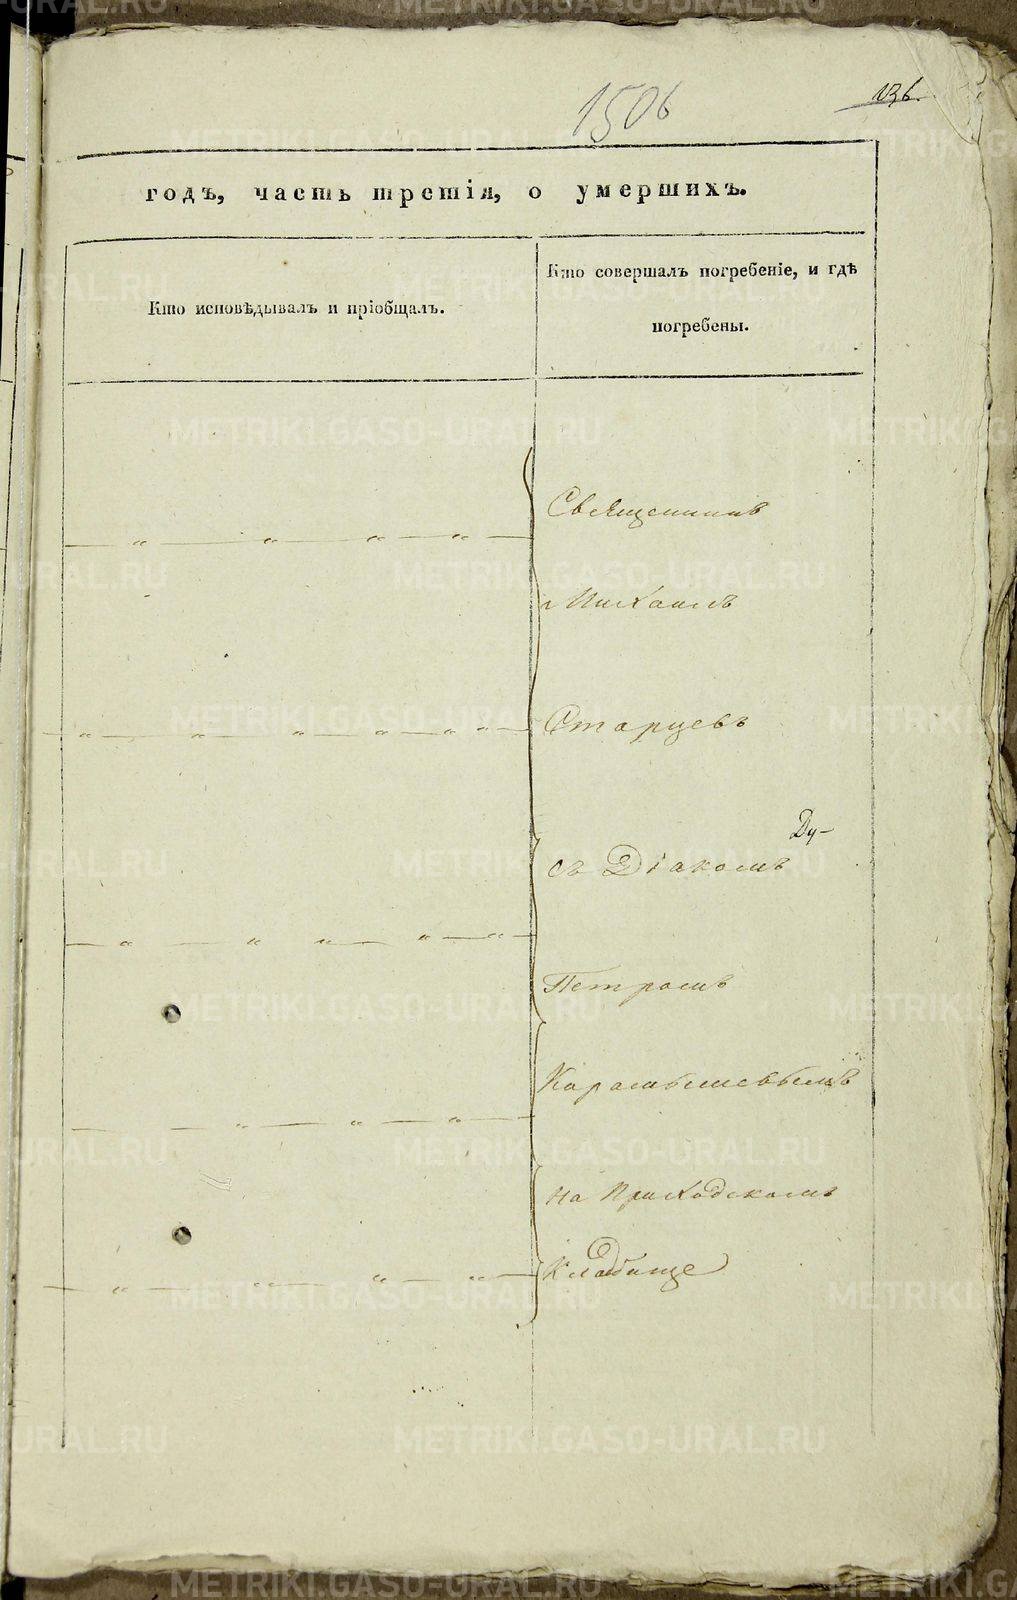 1506
136.
годъ, часть третія, о умершихъ.
Кто исповѣдывалъ и пріобщалъ.
Кто совершалъ погребеніе, и гдѣ
погребены.
Священникъ
Михаилъ
Старцевъ
Ду-
съ Діакомъ
Петромъ
Карамышевымъ
на Приходскомъ
Кладбище
METRIKI.GASO-URAL.RU